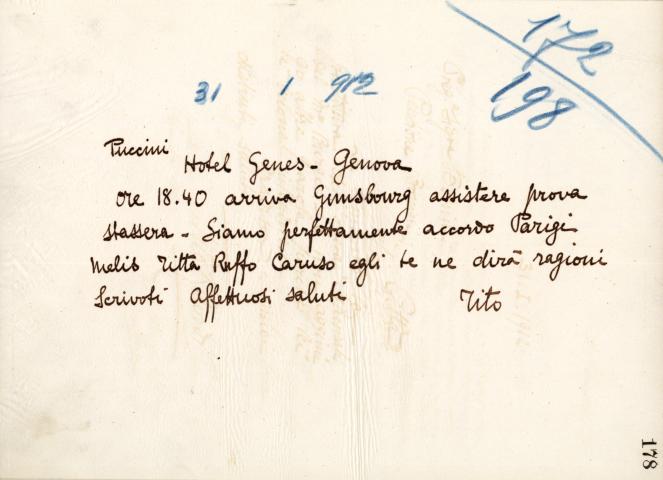 172
198
31 1 912
Puccini
Hotel Genes - Genova
ore 18.40 arriva Gunsbourg assistere prova
stassera - Siamo perfettamente accordo Parigi
Melis Titta Ruffo Caruso egli te ne dirà ragioni
Scrivoti Affettuosi saluti Tito
178